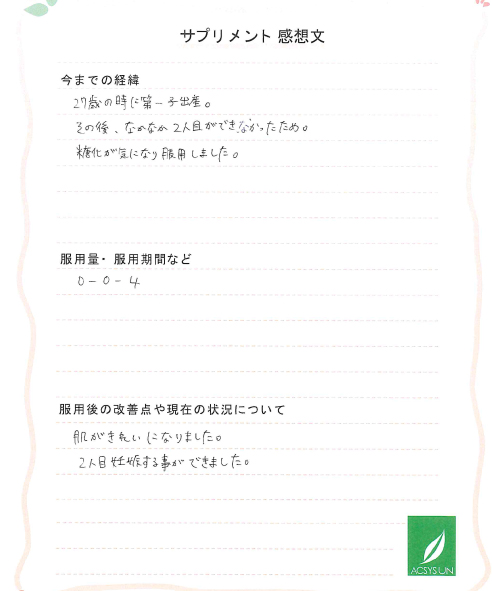 サプリメント 感想文
今までの経緯
27歳の時に第一子出産。
その後、なかなか2人目ができなかったため。
糖化が気になり服用しました。
服用量・服用期間など
0-0-4
服用後の改善点や現在の状況について
肌がきれいになりました。
2人目妊娠する事ができました。
ACSYSUN